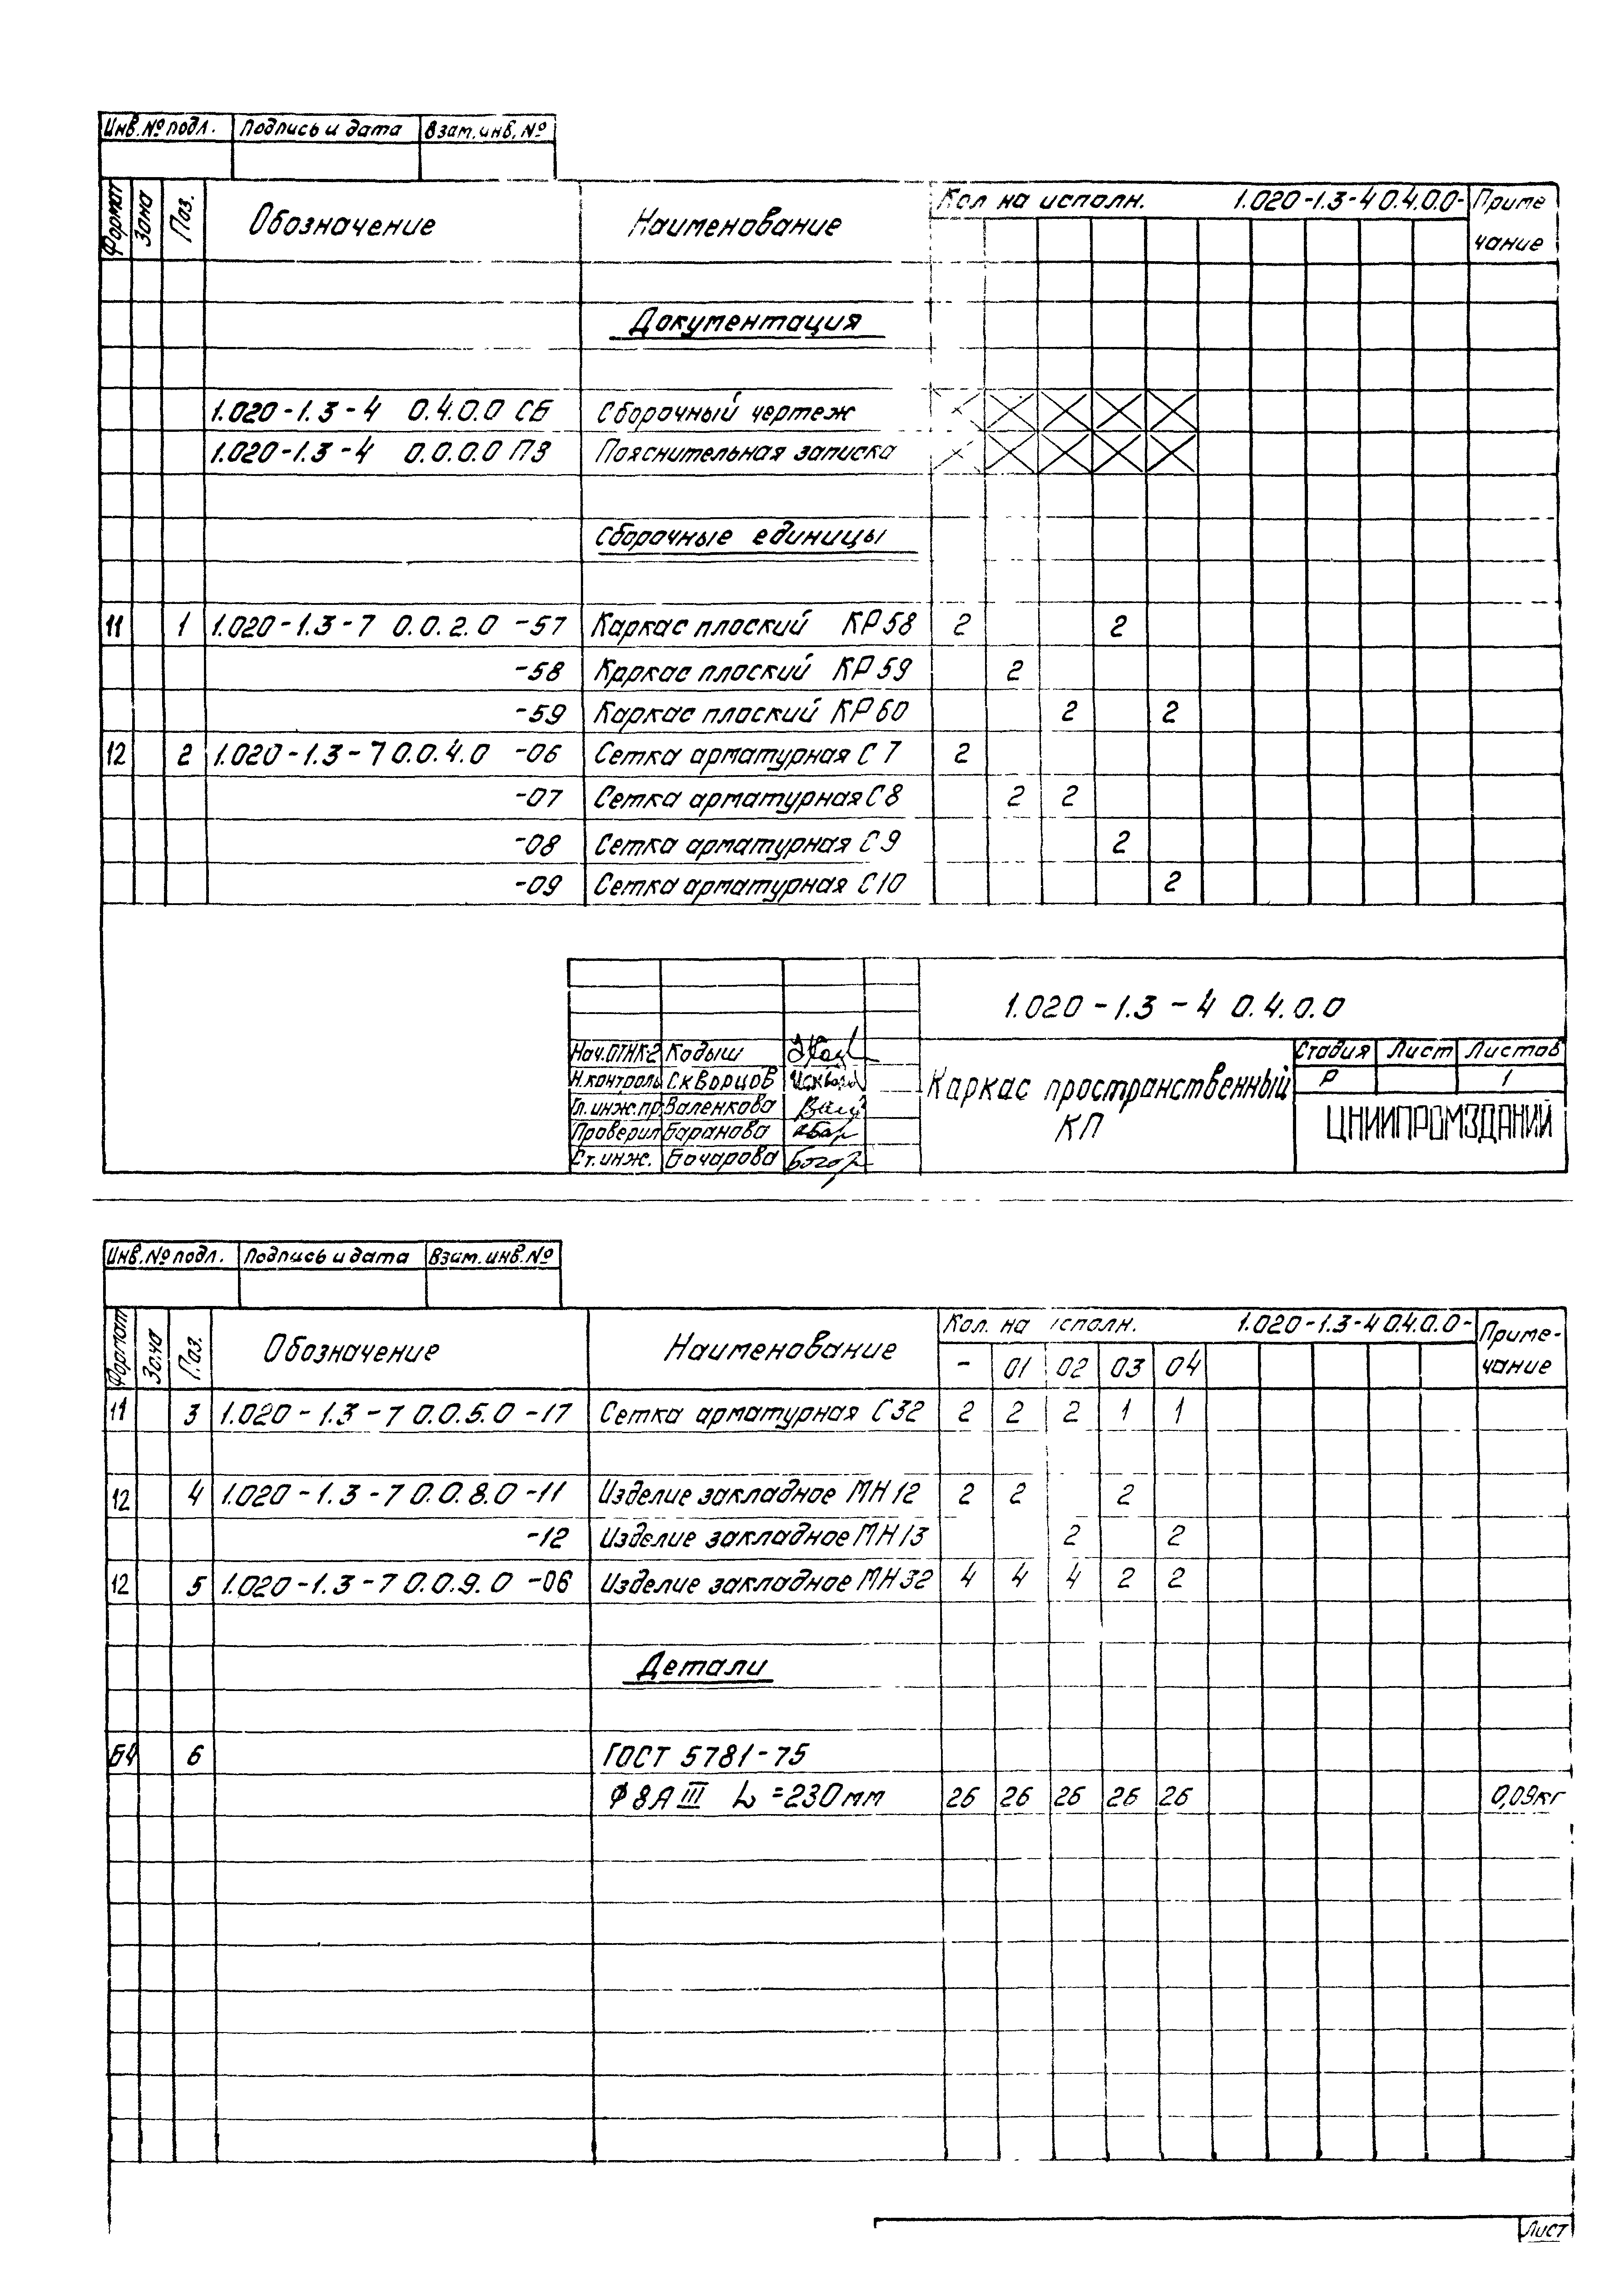 Инв.№ подл. Подпись и дата Взам.инв.№
Формат Зона Поз. Обозначение Наименование Кол на исполн. 1.020-1.3-4 0.4.0.0- Приме
чание
Документация
1.020-1.3-4 0.4.0.0 СБ Сборочный чертеж
1.020-1.3-4 0.0.0.0 ПЗ Пояснительная записка
Сборочные единицы
11 1 1.020-1.3-7 0.0.2.0 -57 Каркас плоский КР58 2 2
-58 Каркас плоский КР59 2
-59 Каркас плоский КР60 2 2
12 2 1.020-1.3-7 0.0.4.0 -06 Сетка арматурная С7 2
-07 Сетка арматурная С8 2 2
-08 Сетка арматурная С9 2
-09 Сетка арматурная С10 2
1.020-1.3-4 0.4.0.0
Нач.ОТНК2 Кодыш
Н.контроль Скворцов
Гл.инж.пр. Валенкова
Проверил Баранова
Ст.инж. Бочарова
Каркас пространственный
КП
Стадия Лист Листов
Р 1
ЦНИИПРОМЗДАНИЙ
Инв.№ подл. Подпись и дата Взам.инв.№
Формат Зона Поз. Обозначение Наименование Кол. на исполн. 1.020-1.3-4 0.4.0.0- Приме-
- 01 02 03 04 чание
11 3 1.020-1.3-7 0.0.5.0 -17 Сетка арматурная С32 2 2 2 1 1
12 4 1.020-1.3-7 0.0.8.0 -11 Изделие закладное МН12 2 2 2
-12 Изделие закладное МН13 2 2
12 5 1.020-1.3-7 0.0.9.0 -06 Изделие закладное МН32 4 4 4 2 2
Детали
Б4 6 ГОСТ 5781-75
Ф8АIII L=230мм 26 26 26 26 26 0,09кг
Лист